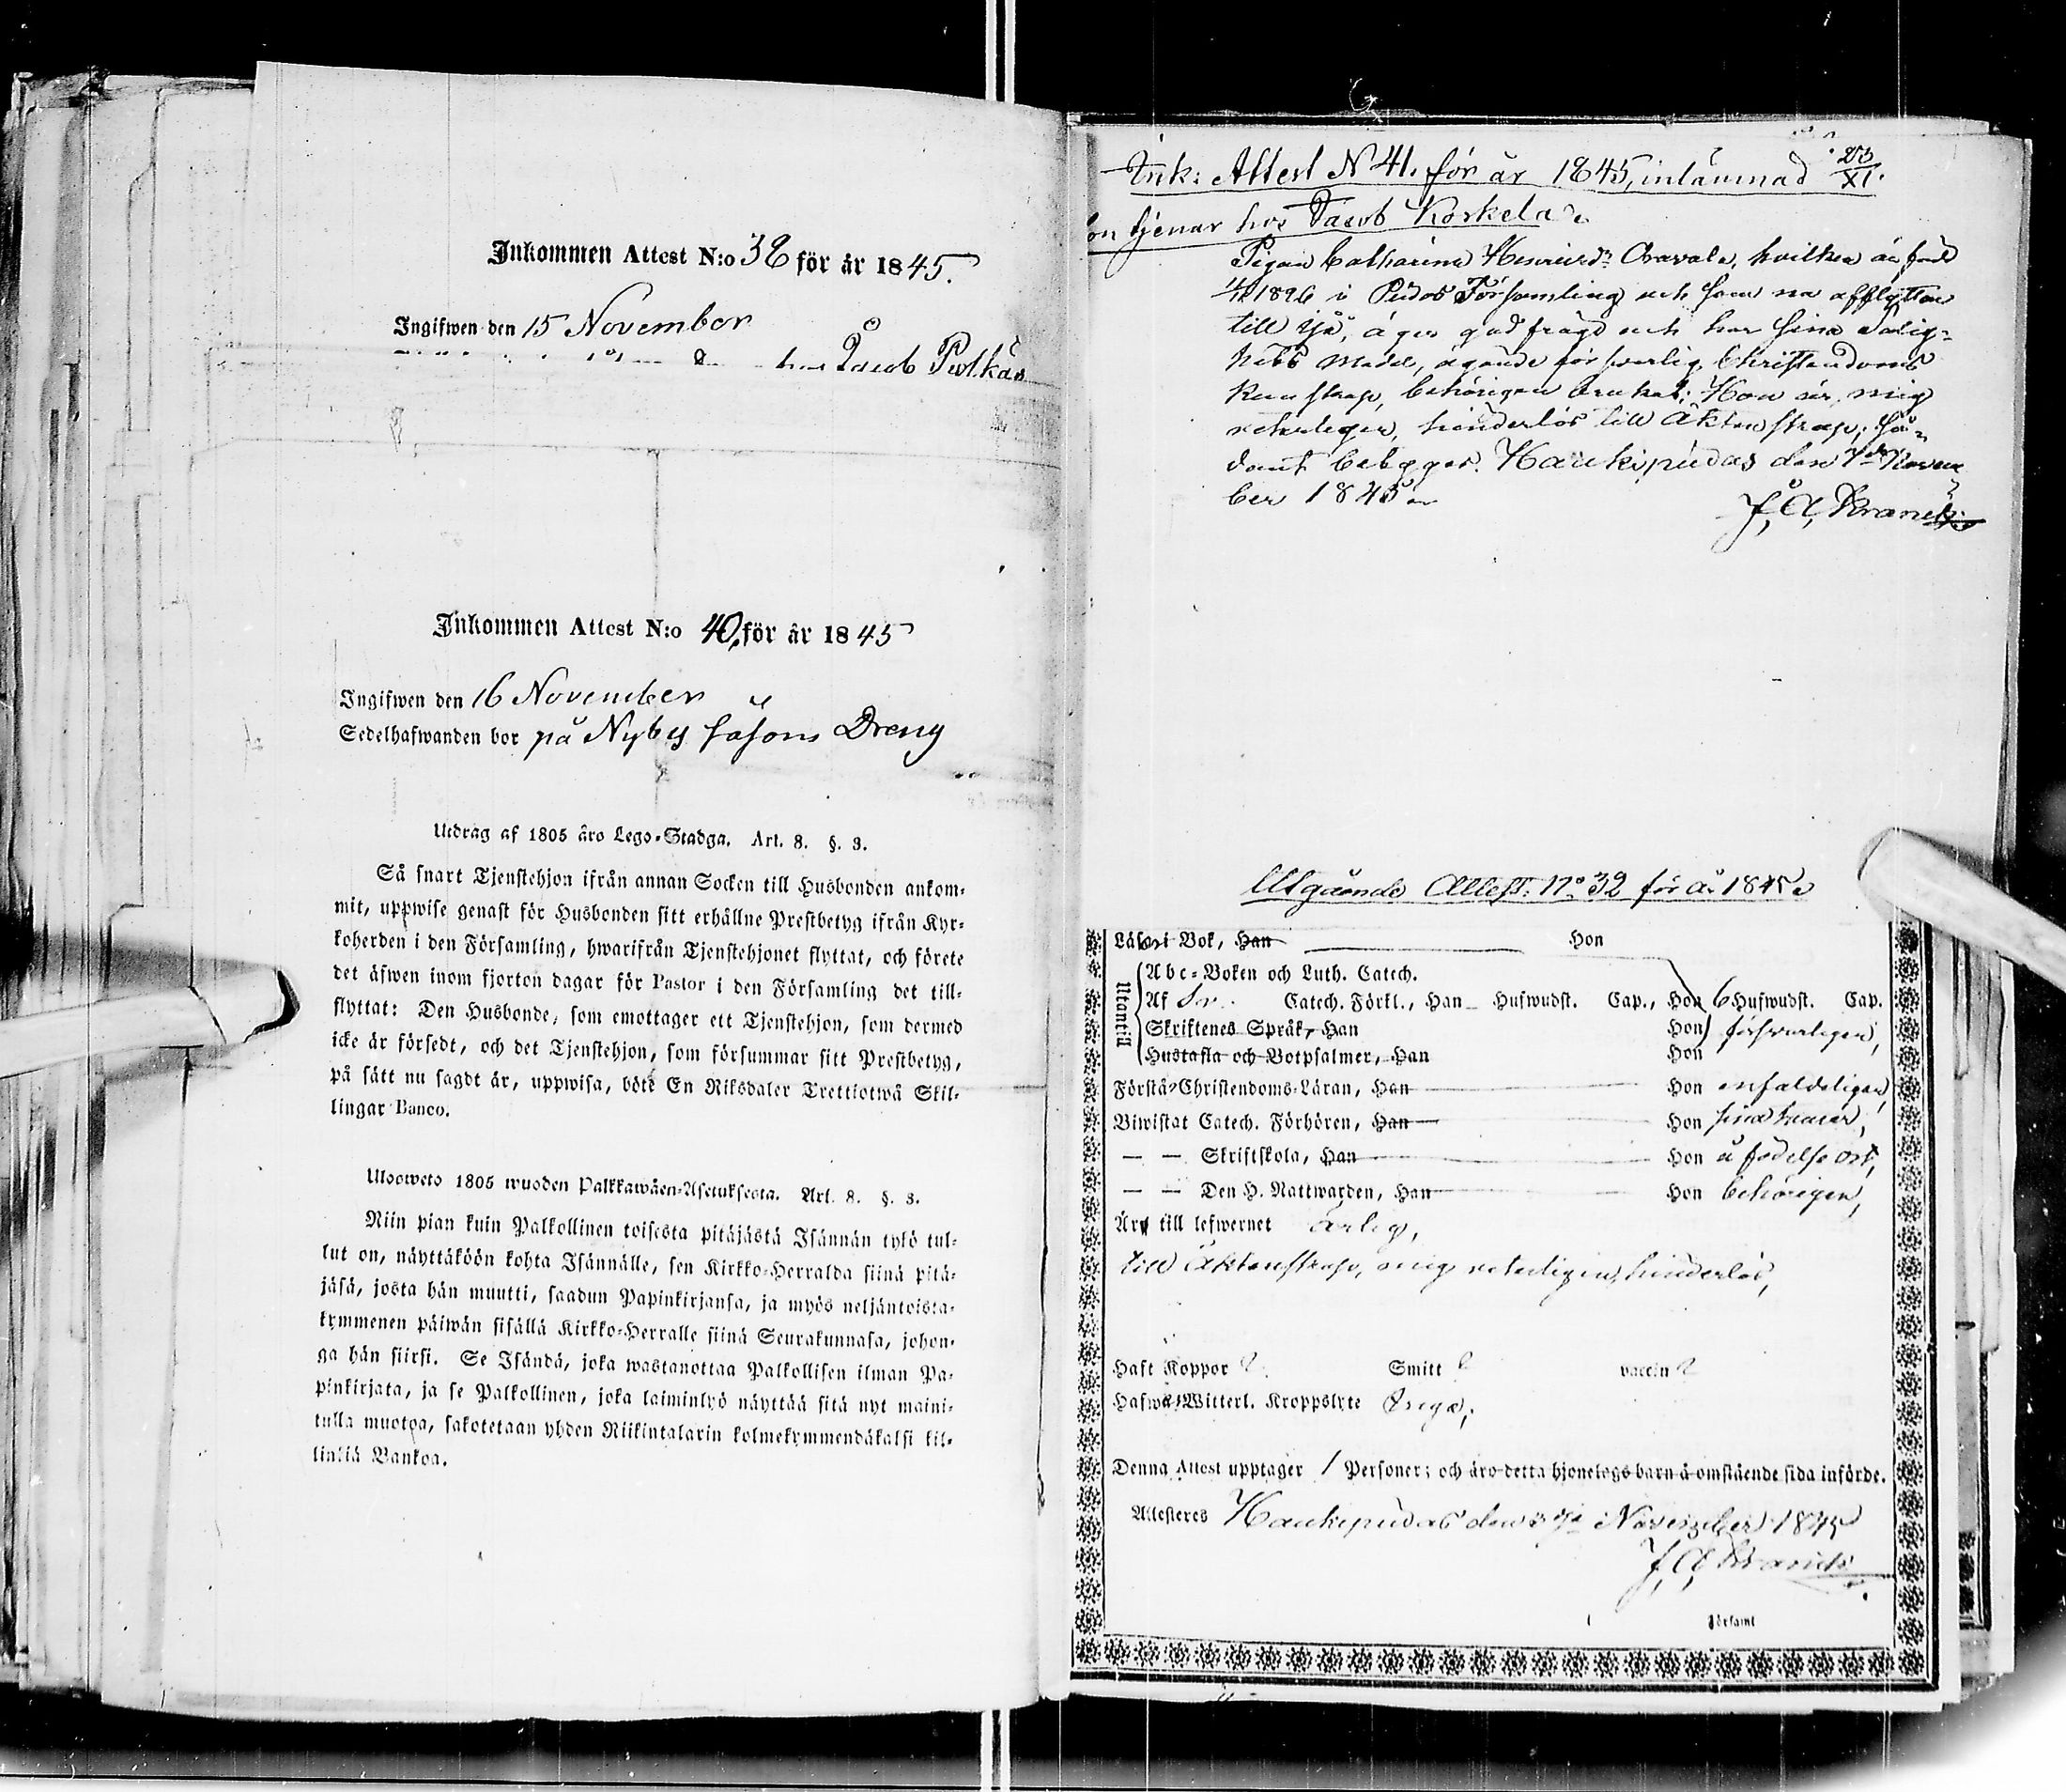 Inkommen Attest N:o 38 för år 1845.
Ingifwen den 15 November
hos Jacob
Inkommen Attest N:o 40, för år 1845
Ingifwen den 16 November
Sedelhafwanden bor på Nyby såsom Dreng
Utdrag af 1805 åro Lego-Stadga. Art. 8. §. 3.
Så snart Tjenstehjon ifrån annan Socken till Husbonden ankom-
mit, uppwise genast för Husbonden sitt erhållne Prestbetyg ifrån Kyr-
koherden i den Församling, hwarifrån Tjenstehjonet flyttat, och förete
det äfwen inom fjorton dagar för Pastor i den Församling det till-
flyttat: Den Husbonde, som emottager ett Tjenstehjon, som dermed
icke är försedt, och det Tjenstehjon, som försummar sitt Prestbetyg,
på sätt nu sagdt är, uppwisa, böte En Riksdaler Trettiotwå Skil-
lingar Banco.
Uloosweto 1805 wuoden Palkkawäen-Asetuksesta. Art. 8. §. 3.
Niin pian kuin Palkollinen toisesta pitäjästä Isännän tykö tul-
lut on, näyttäköön kohta Isännälle, sen Kirkko-Herralda siinä pitä-
jäsä, josta hän muutti, saadun Papinkirjansa, ja myös neljäntoista-
kymmenen päiwän sisällä Kirkko-Herralle siinä Seurakunnasa, johon-
ga hän siirsi. Se Isändä, joka wastanottaa Palkollisen ilman Pa-
pinkirjata, ja se Palkollinen, joka laiminlyö näyttää sitä nyt maini-
tulla muotoa, sakotetaan yhden Riikintalarin kolmekymmendäkaksi kil-
linkiä Bankoa.
Ink: Attest N 41. för år 1845, inlämnad 23/XI.
on tjenar hos Jacob Korkela
Pigan Catharina Henricsdr Oravala, hvilken är född
1826 i Pudos Församling och som nu afflyttar
till Ijo, äger god frägd och har sina Salig-
hets medel, ägande försvarlig Christendoms
kunskap, behörigen brukat; Hon är, mig
veterligen, hinderlös till Äktenskap; så-
dant betygas. Haukipudas den 7de Novem
ber 1845
J. A. Kranck
Utgående Attest. No 32 för år 1845
Läser i Bok, Han Hon
Utantill
Abc-Boken och Luth. Catech.
Af Sv. Catech. Förkl., Han Hufwudst. Cap., Hon 6 Hufwudst. Cap.
Skriftenes Språk, Han Hon försvarligen,
Hustafla och Botpsalmer, Han Hon
Förstår Christendoms-Läran, Han Hon enfaldeligen,
Biwistat Catech. Förhören, Han Hon
— — Skriftskola, Han Hon å födelse ort,
— — Den H. Nattwarden, Han Hon behörigen,
Är till lefwernet ärlig,
till äktenskap, mig veterligen, hinderlös,
Haft Koppor ? Smitt ? vaccin ?
Hafwer Witterl. Kroppslyte
Denna Attest upptager 1 Personer; och äro detta hjonelags barn å omstående sida införde.
Attesteres Haukipudas den November 1845
J. A. Kranck
i Församl